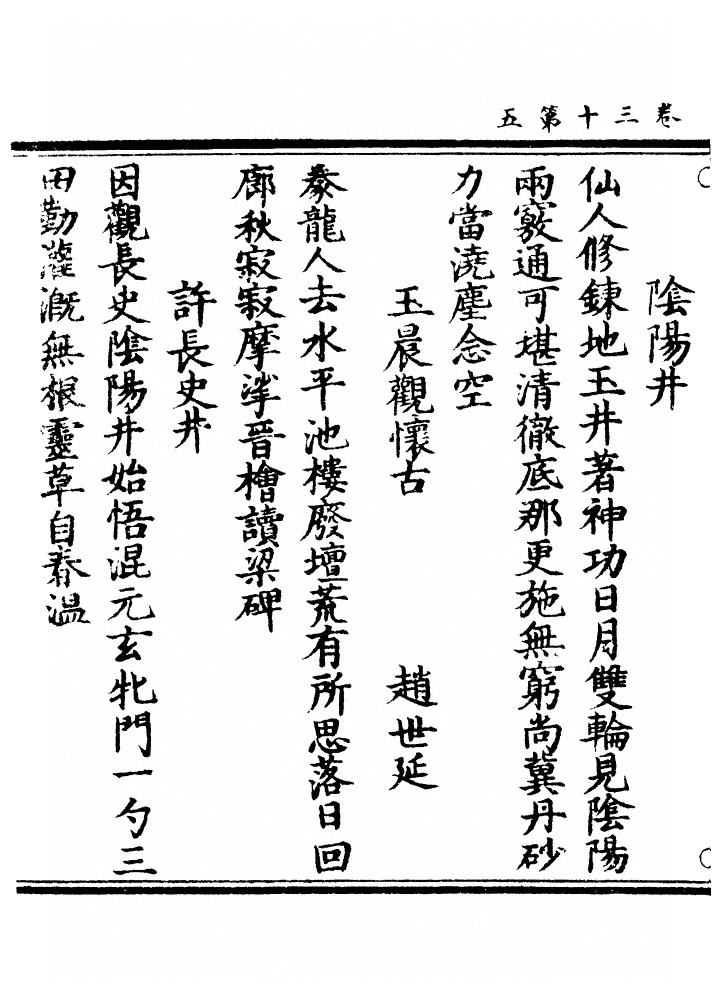 卷三十第五
陰陽井
仙人修鍊地玉井著神功日月雙輪見陰陽
兩竅通可堪清徹底那更施無窮尚冀丹砂
力當澆塵念空
玉晨觀懷古 趙世延
豢龍人去水平池樓廢壇荒有所思落日回
廊秋寂寂摩挲晉檜讀梁碑
許長史井
因觀長史陰陽井始悟混元玄牝門一勺三
田勤灌溉無根靈草自春溫